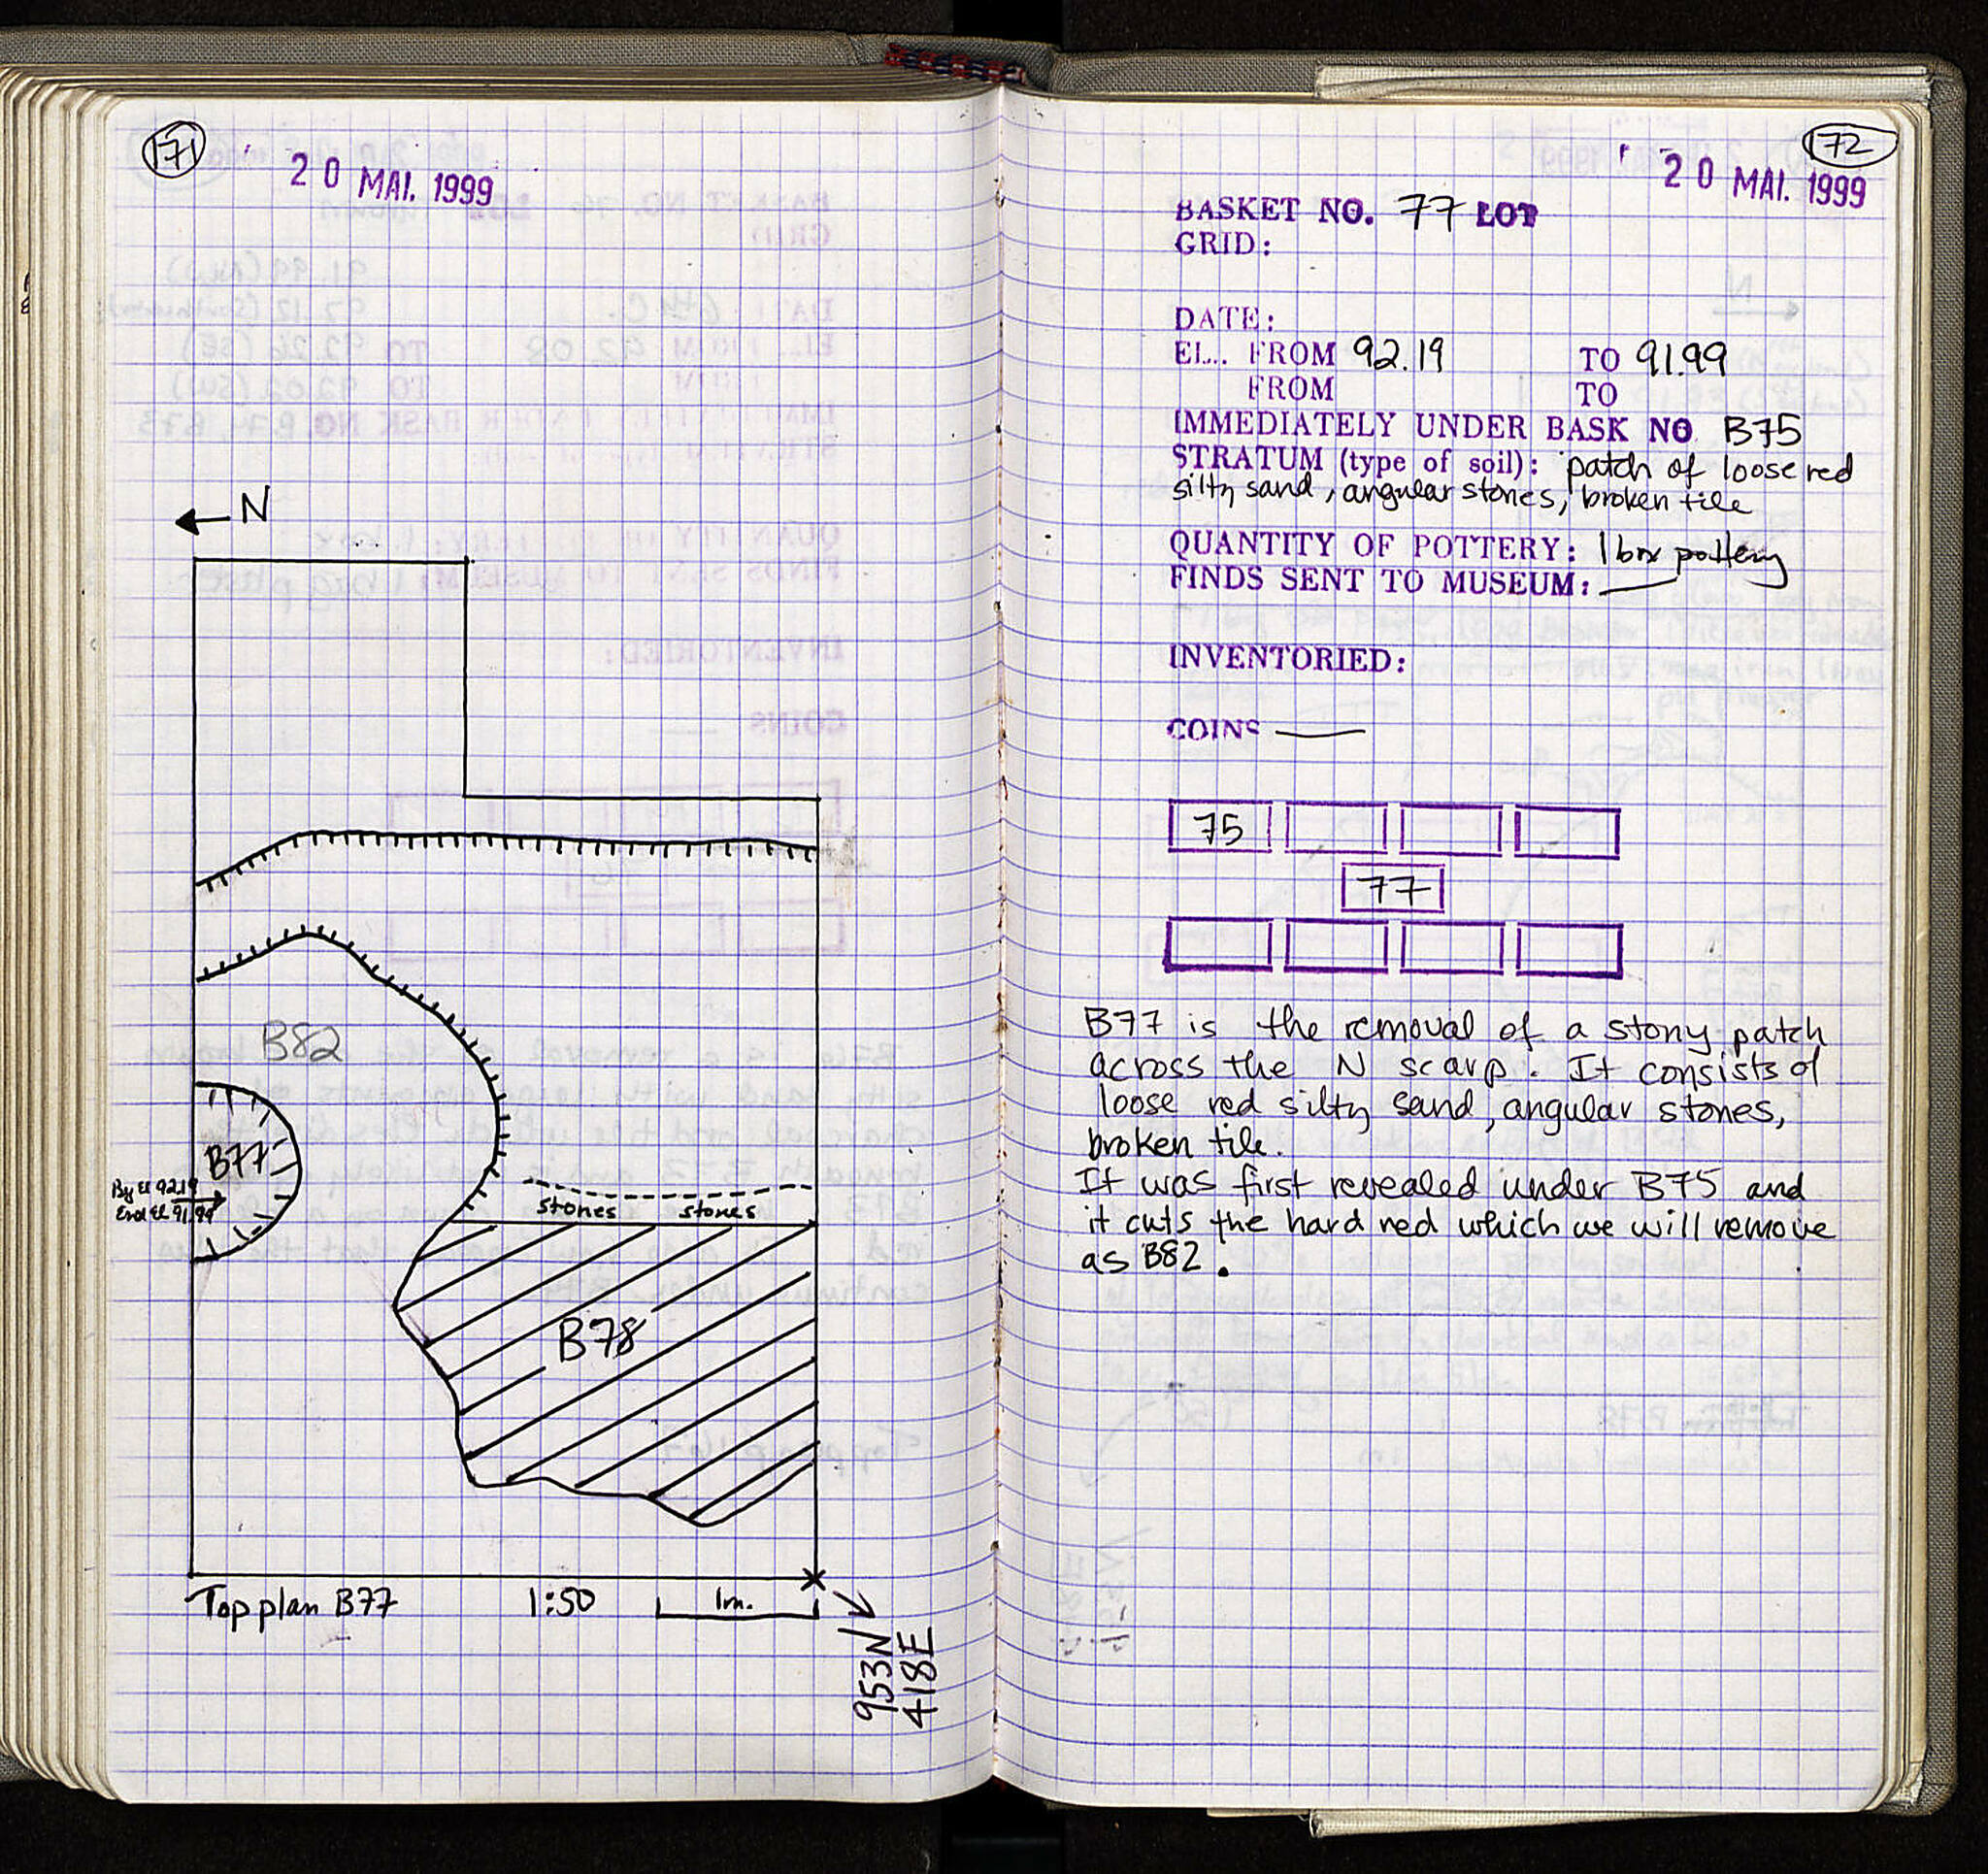 171
20 MAI. 1999
N
B82
B77
Beg El 92.19
End El 91.99
stones stones
B78
Top plan B77 1:50 1m.
953N
418E
172
20 MAI. 1999
BASKET NO. 77 LOT
GRID:
DATE:
EL.. FROM 92.19 TO 91.99
FROM TO
IMMEDIATELY UNDER BASK NO. B75
STRATUM (type of soil): patch of loose red
silty sand, angular stones, broken tile
QUANTITY OF POTTERY: 1 box pottery
FINDS SENT TO MUSEUM: —
INVENTORIED:
COINS —
75
77
B77 is the removal of a stony patch
across the N scarp. It consists of
loose red silty sand, angular stones,
broken tile.
It was first revealed under B75 and
it cuts the hard red which we will remove
as B82.